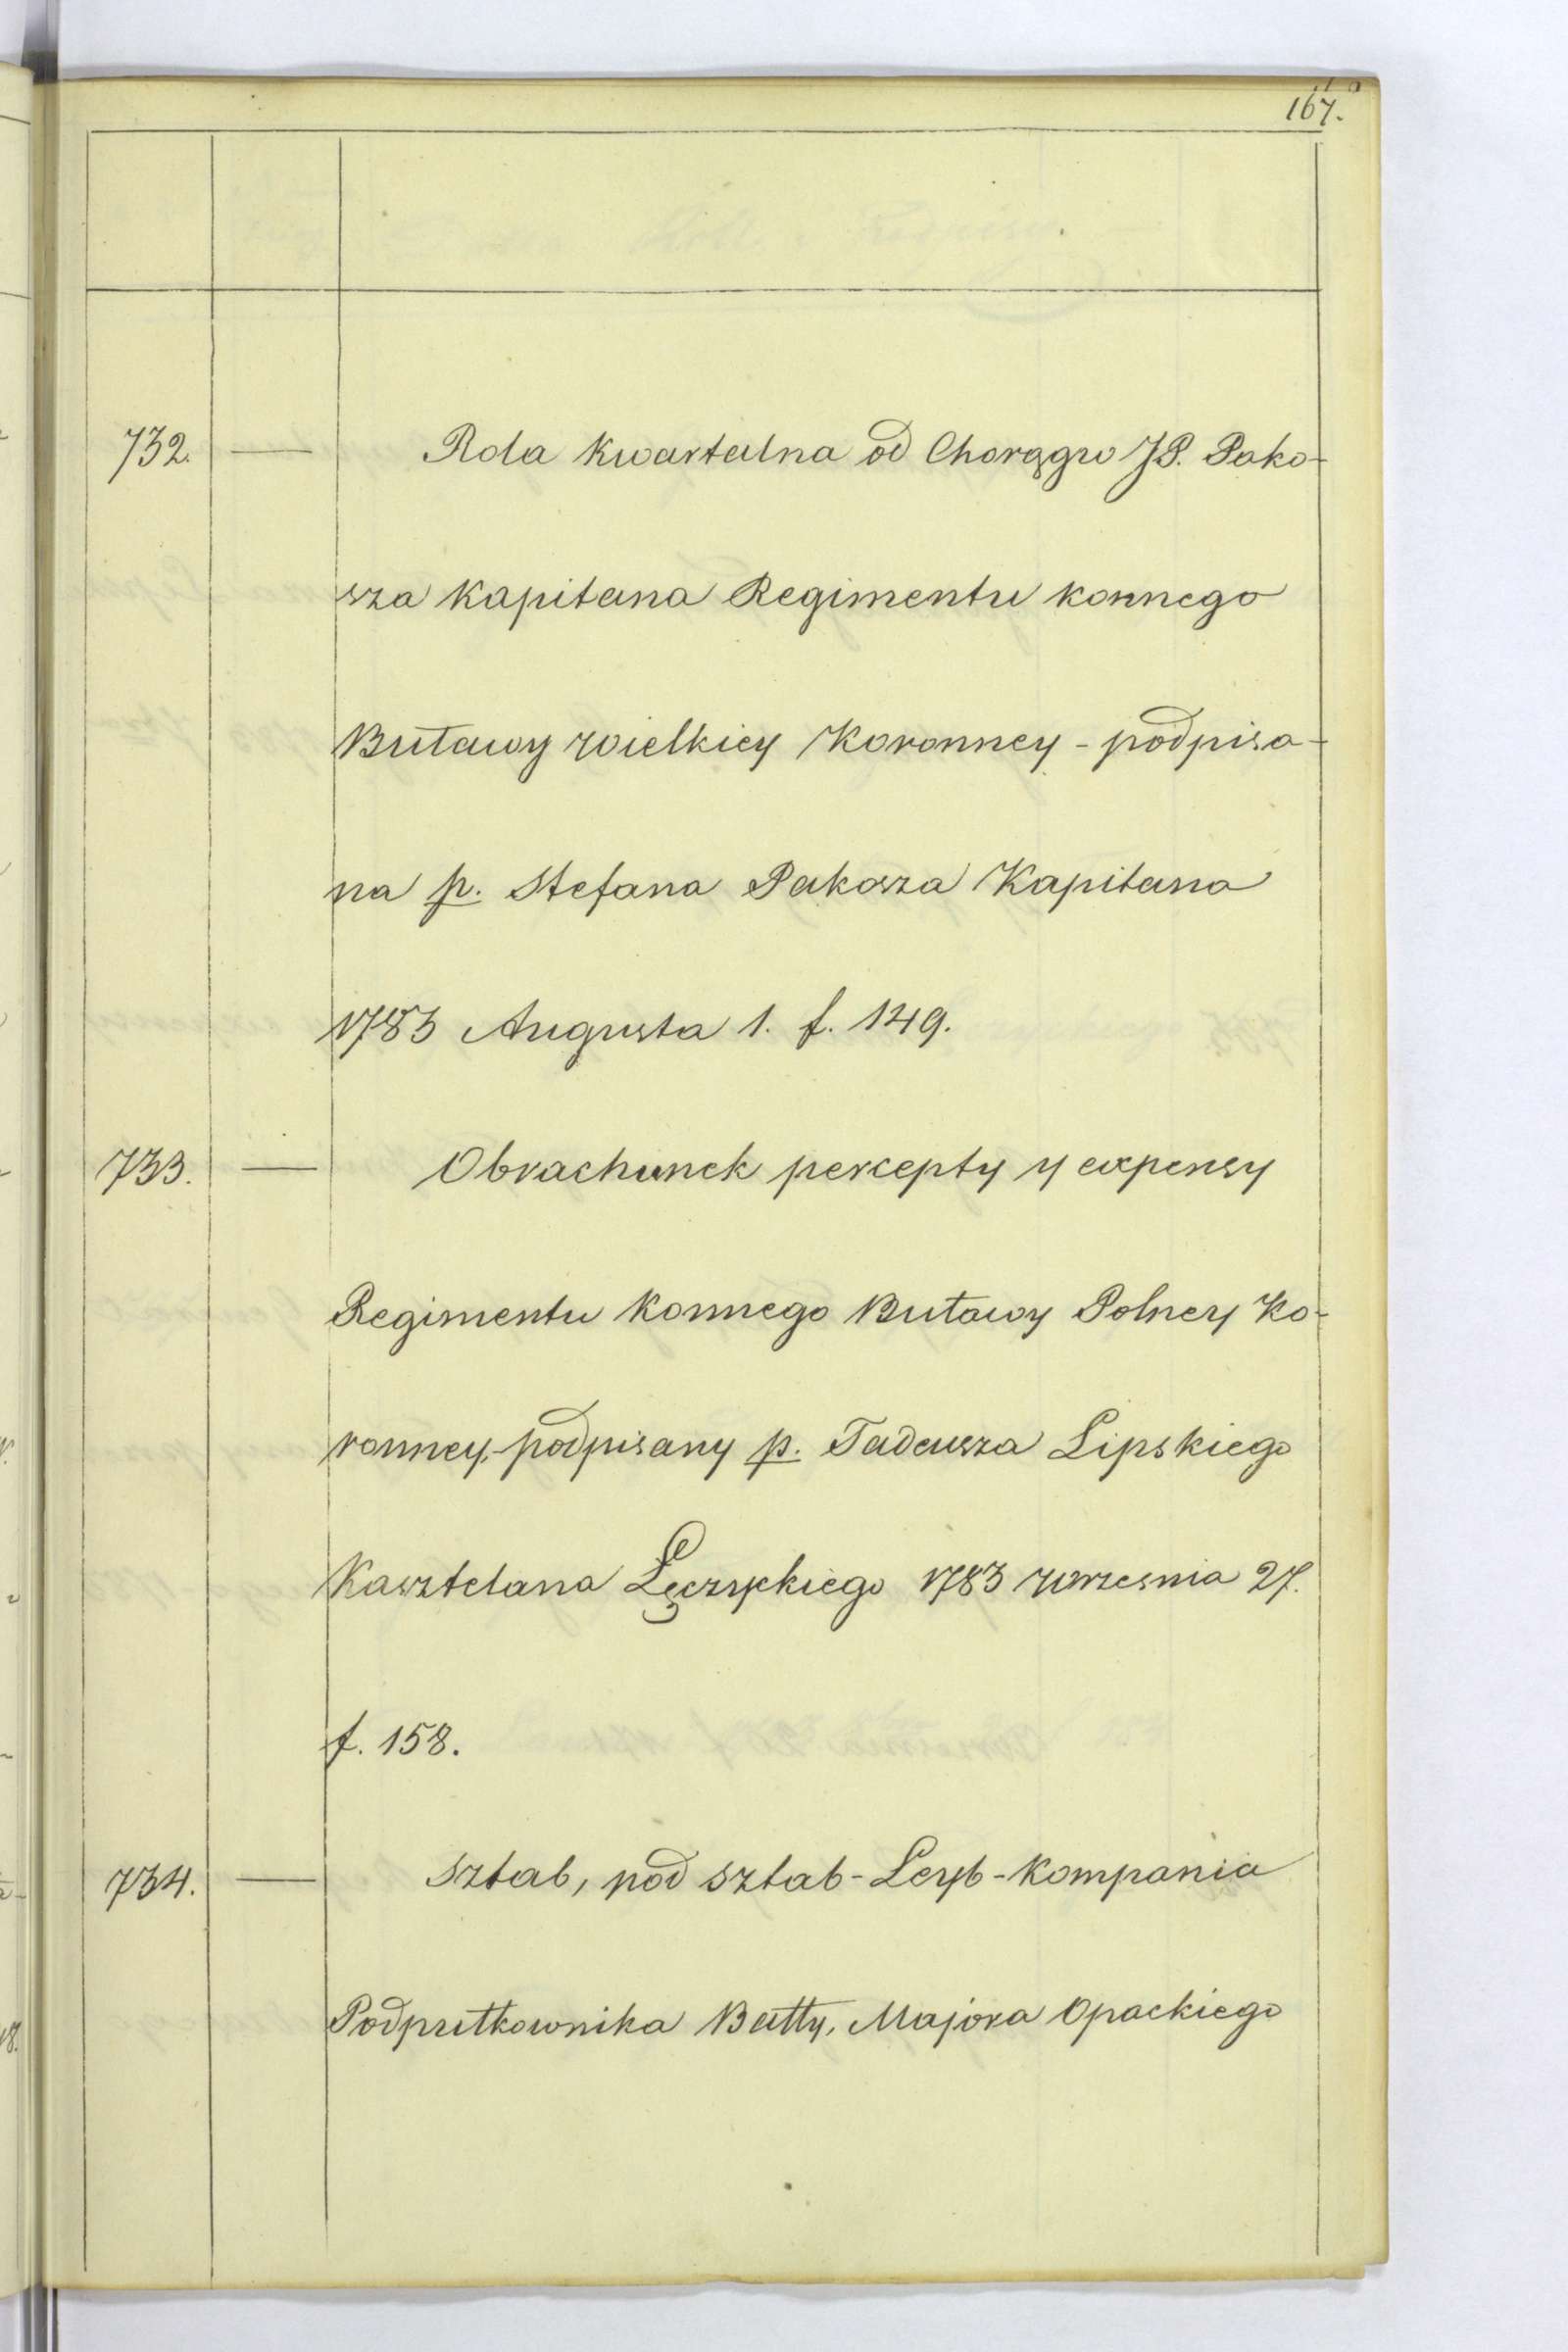 167.
732. — Rola kwartalna od Chorągw JP. Pako-
sza Kapitana Regimentu konnego
Buławy wielkiey Koronney - podpisa-
na p. Stefana Pakosza Kapitana
1783 Augusta 1. f. 149.
733. — Obrachunek percepty y expensy
Regimentu konnego Buławy Polney Ko-
ronney, - podpisany p. Tadeusza Lipskiego
Kasztelana Łęczyckiego 1783 września 27.
f. 158.
734. — Sztab, pod sztab - Leyb - Kompania
Podpułkownika Batty, Majora Opackiego